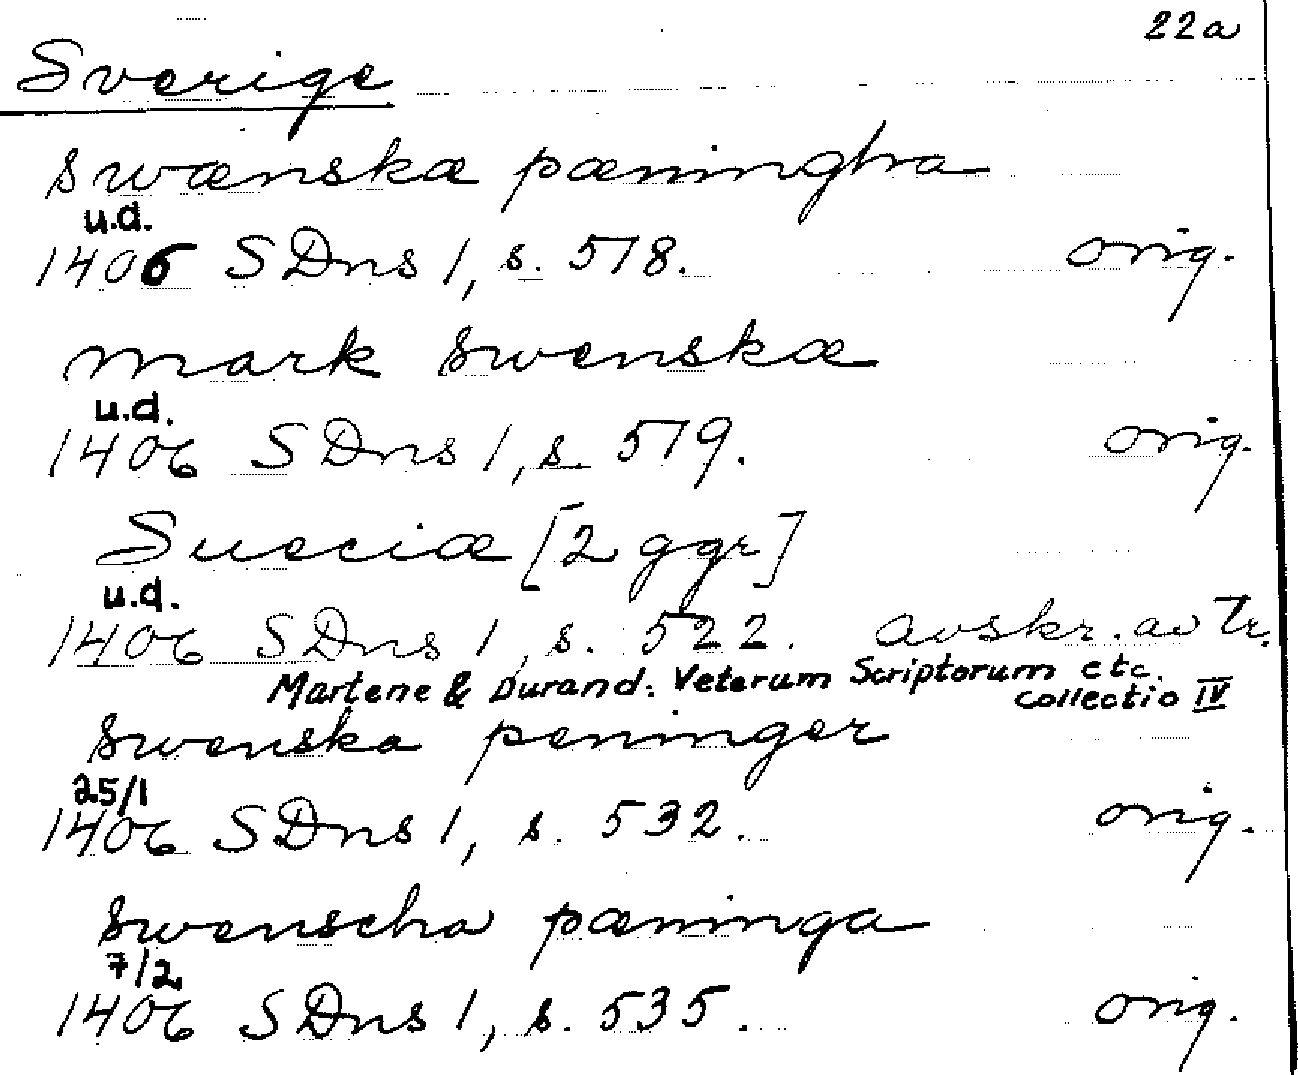 22a
Sverige
swænska pæningha
u.d.
1406 SDns 1, s. 518. orig.
mark swenskæ
u.d.
1406 SDns 1, s. 519. orig.
Sueciæ [2 ggr]
u.d.
1406 SDns 1, s. 522. avskr. av Tr.
Martene & Durand: Veterum Scriptorum etc.
collectio IV
swenska peninger
25/1
1406 SDns 1, s. 532. orig.
swenscha pæninga
7/2
1406 SDns 1, s. 535. orig.